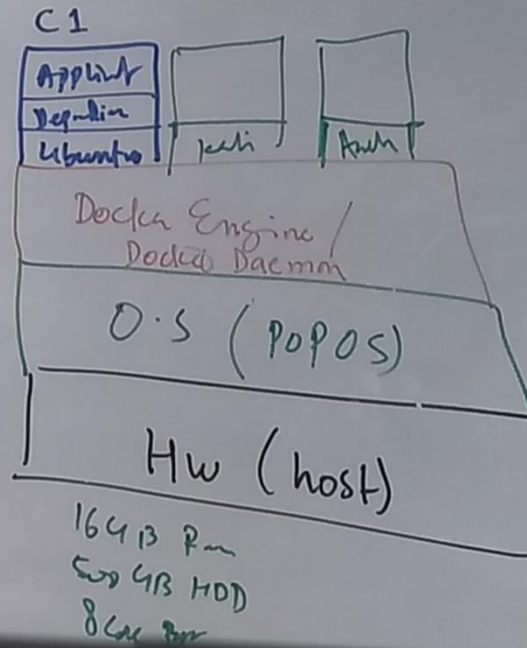 C1
Applint
Depndin
Ubuntu
kali
Arch
Docker Engine /
Docker Daemon
O.S (POPOS)
Hw (host)
16GB Ram
500 GB HDD
8 Core